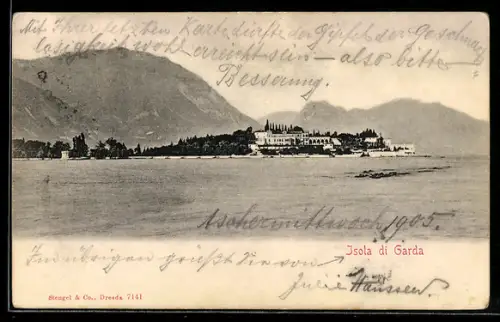 Mit Ihrer letzten Karte dürfte der Gipfel der Geschmack-
losigkeit wohl erreicht sein — also bitte —
Besserung.
Aschermittwoch 1905.
Isola di Garda
Im übrigen grüßt Sie
Julie
Stengel & Co., Dresda 7141